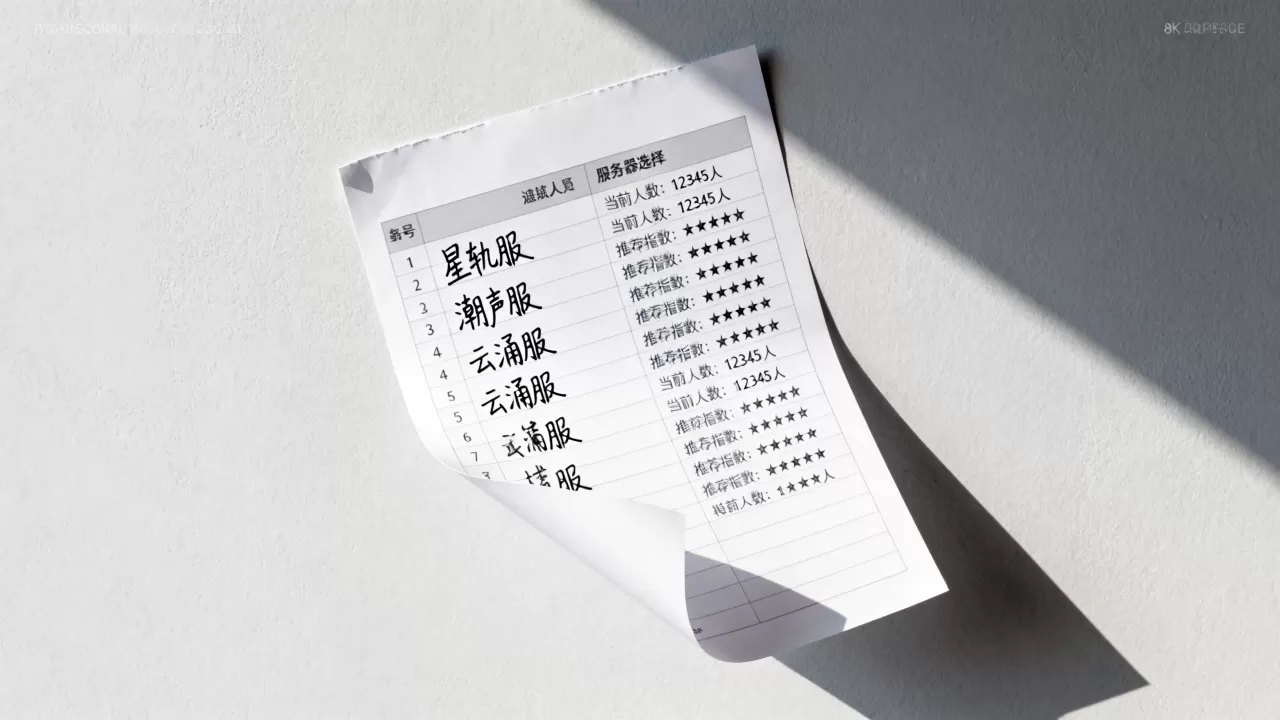 服务器选择
号
1 星轨服 当前人数：12345人
2 当前人数：12345人
3 潮声服 推荐指数：★★★★★
3 推荐指数：★★★★★
4 云涌服 推荐指数：★★★★★
4 推荐指数：★★★★★
5 云涌服 推荐指数：★★★★★
5 推荐指数：★★★★★
6 服 当前人数：12345人
7 当前人数：12345人
服 推荐指数：★★★★★
推荐指数：★★★★★
推荐指数：★★★★★
推荐指数：★★★★★
前人数：1★★★人
8K